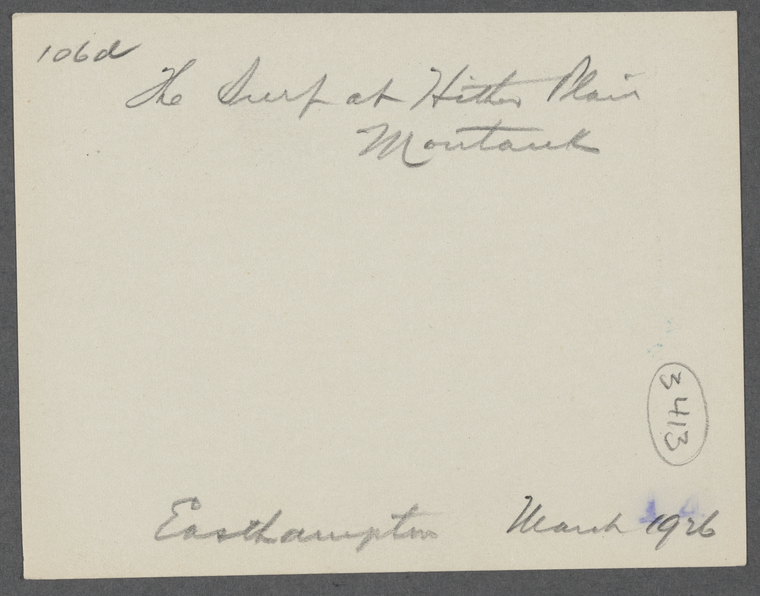 106d
The Surf at Hither Plain
Montauk
3413
Easthampton March 1926